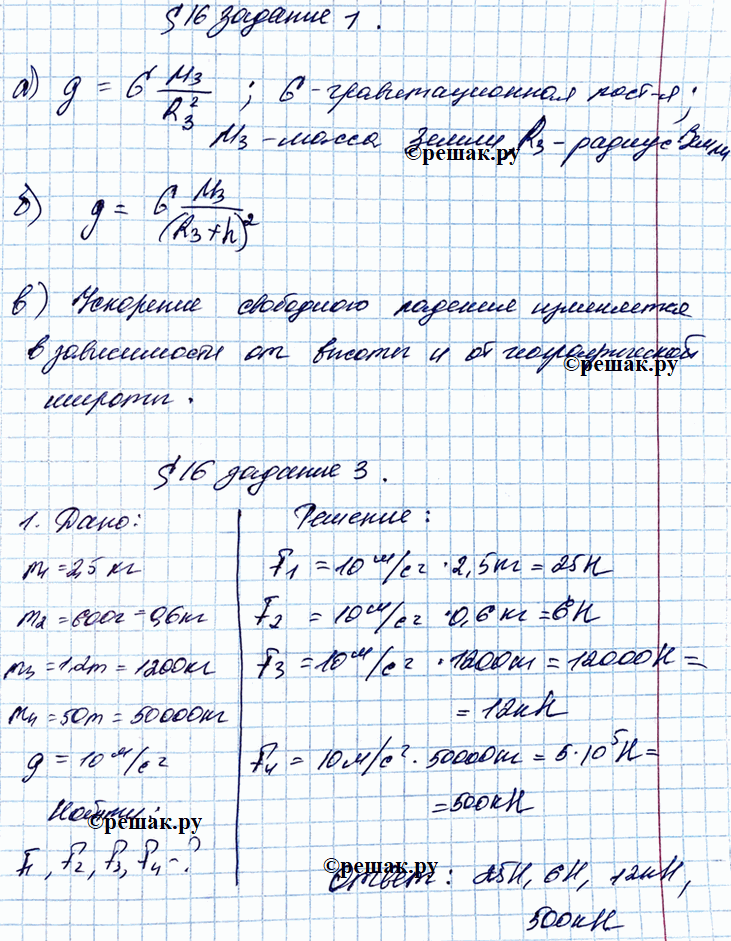 § 16 задание 1.
а) g = G Mз/Rз² ; G - гравитационная пост-я;
Mз - масса Земли, Rз - радиус Земли
©решак.ру
б) g = G Mз/(Rз+h)²
в) Ускорение свободного падения изменяется
в зависимости от высоты и от географической
©решак.ру
широты.
§ 16 задание 3.
1. Дано:
m1 = 2,5 кг
m2 = 600г = 0,6кг
m3 = 1.2т = 1200кг
m4 = 50т = 50000кг
g = 10 м/с²
Найти:
©решак.ру
F1, F2, F3, F4 - ?
Решение:
F1 = 10 м/с² · 2,5кг = 25Н
F2 = 10 м/с² · 0,6 кг = 6Н
F3 = 10 м/с² · 1200кг = 12000Н =
= 12кН
F4 = 10 м/с² · 50000кг = 5·10⁵Н =
= 500кН
©решак.ру
Ответ: 25Н, 6Н, 12кН,
500кН